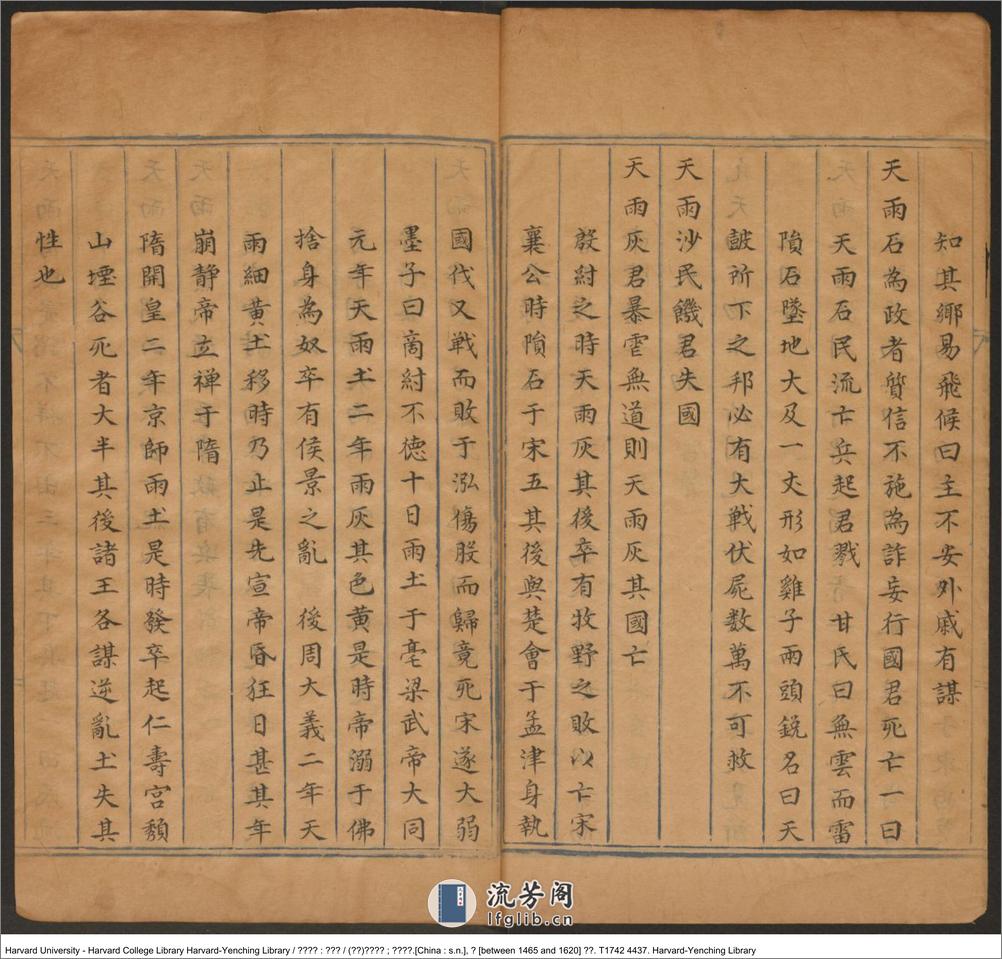 知其鄉易飛候曰主不安外戚有謀
天雨石為政者質信不施為詐妄行國君死亡一曰
天雨石民流亡兵起君戮 甘氏曰無雲而雷
隕石墜地大及一丈形如雞子兩頭銳名曰天
皷所下之邦必有大戰伏屍数萬不可救
天雨沙民饑君失國
天雨灰君暴虐無道則天雨灰其國亡
殷紂之時天雨灰其後卒有牧野之敗以亡宋
襄公時隕石于宋五其後與楚會于孟津身執
國代又戦而敗于泓傷股而歸竟死宋遂大弱
墨子曰商紂不德十日雨土于亳梁武帝大同
元年天雨土二年雨灰其色黄是時帝溺于佛
捨身為奴卒有侯景之亂 後周大義二年天
雨細黄土移時乃止是先宣帝昏狂日甚其年
崩静帝立禅于隋
隋開皇二年京師雨土是時發卒起仁壽宮頹
山堙谷死者大半其後諸王各謀逆亂土失其
性也
流芳阁
lfglib.cn
Harvard University - Harvard College Library Harvard-Yenching Library / ???? : ??? / (??)???? ; ????.[China : s.n.], ? [between 1465 and 1620] ??. T1742 4437. Harvard-Yenching Library